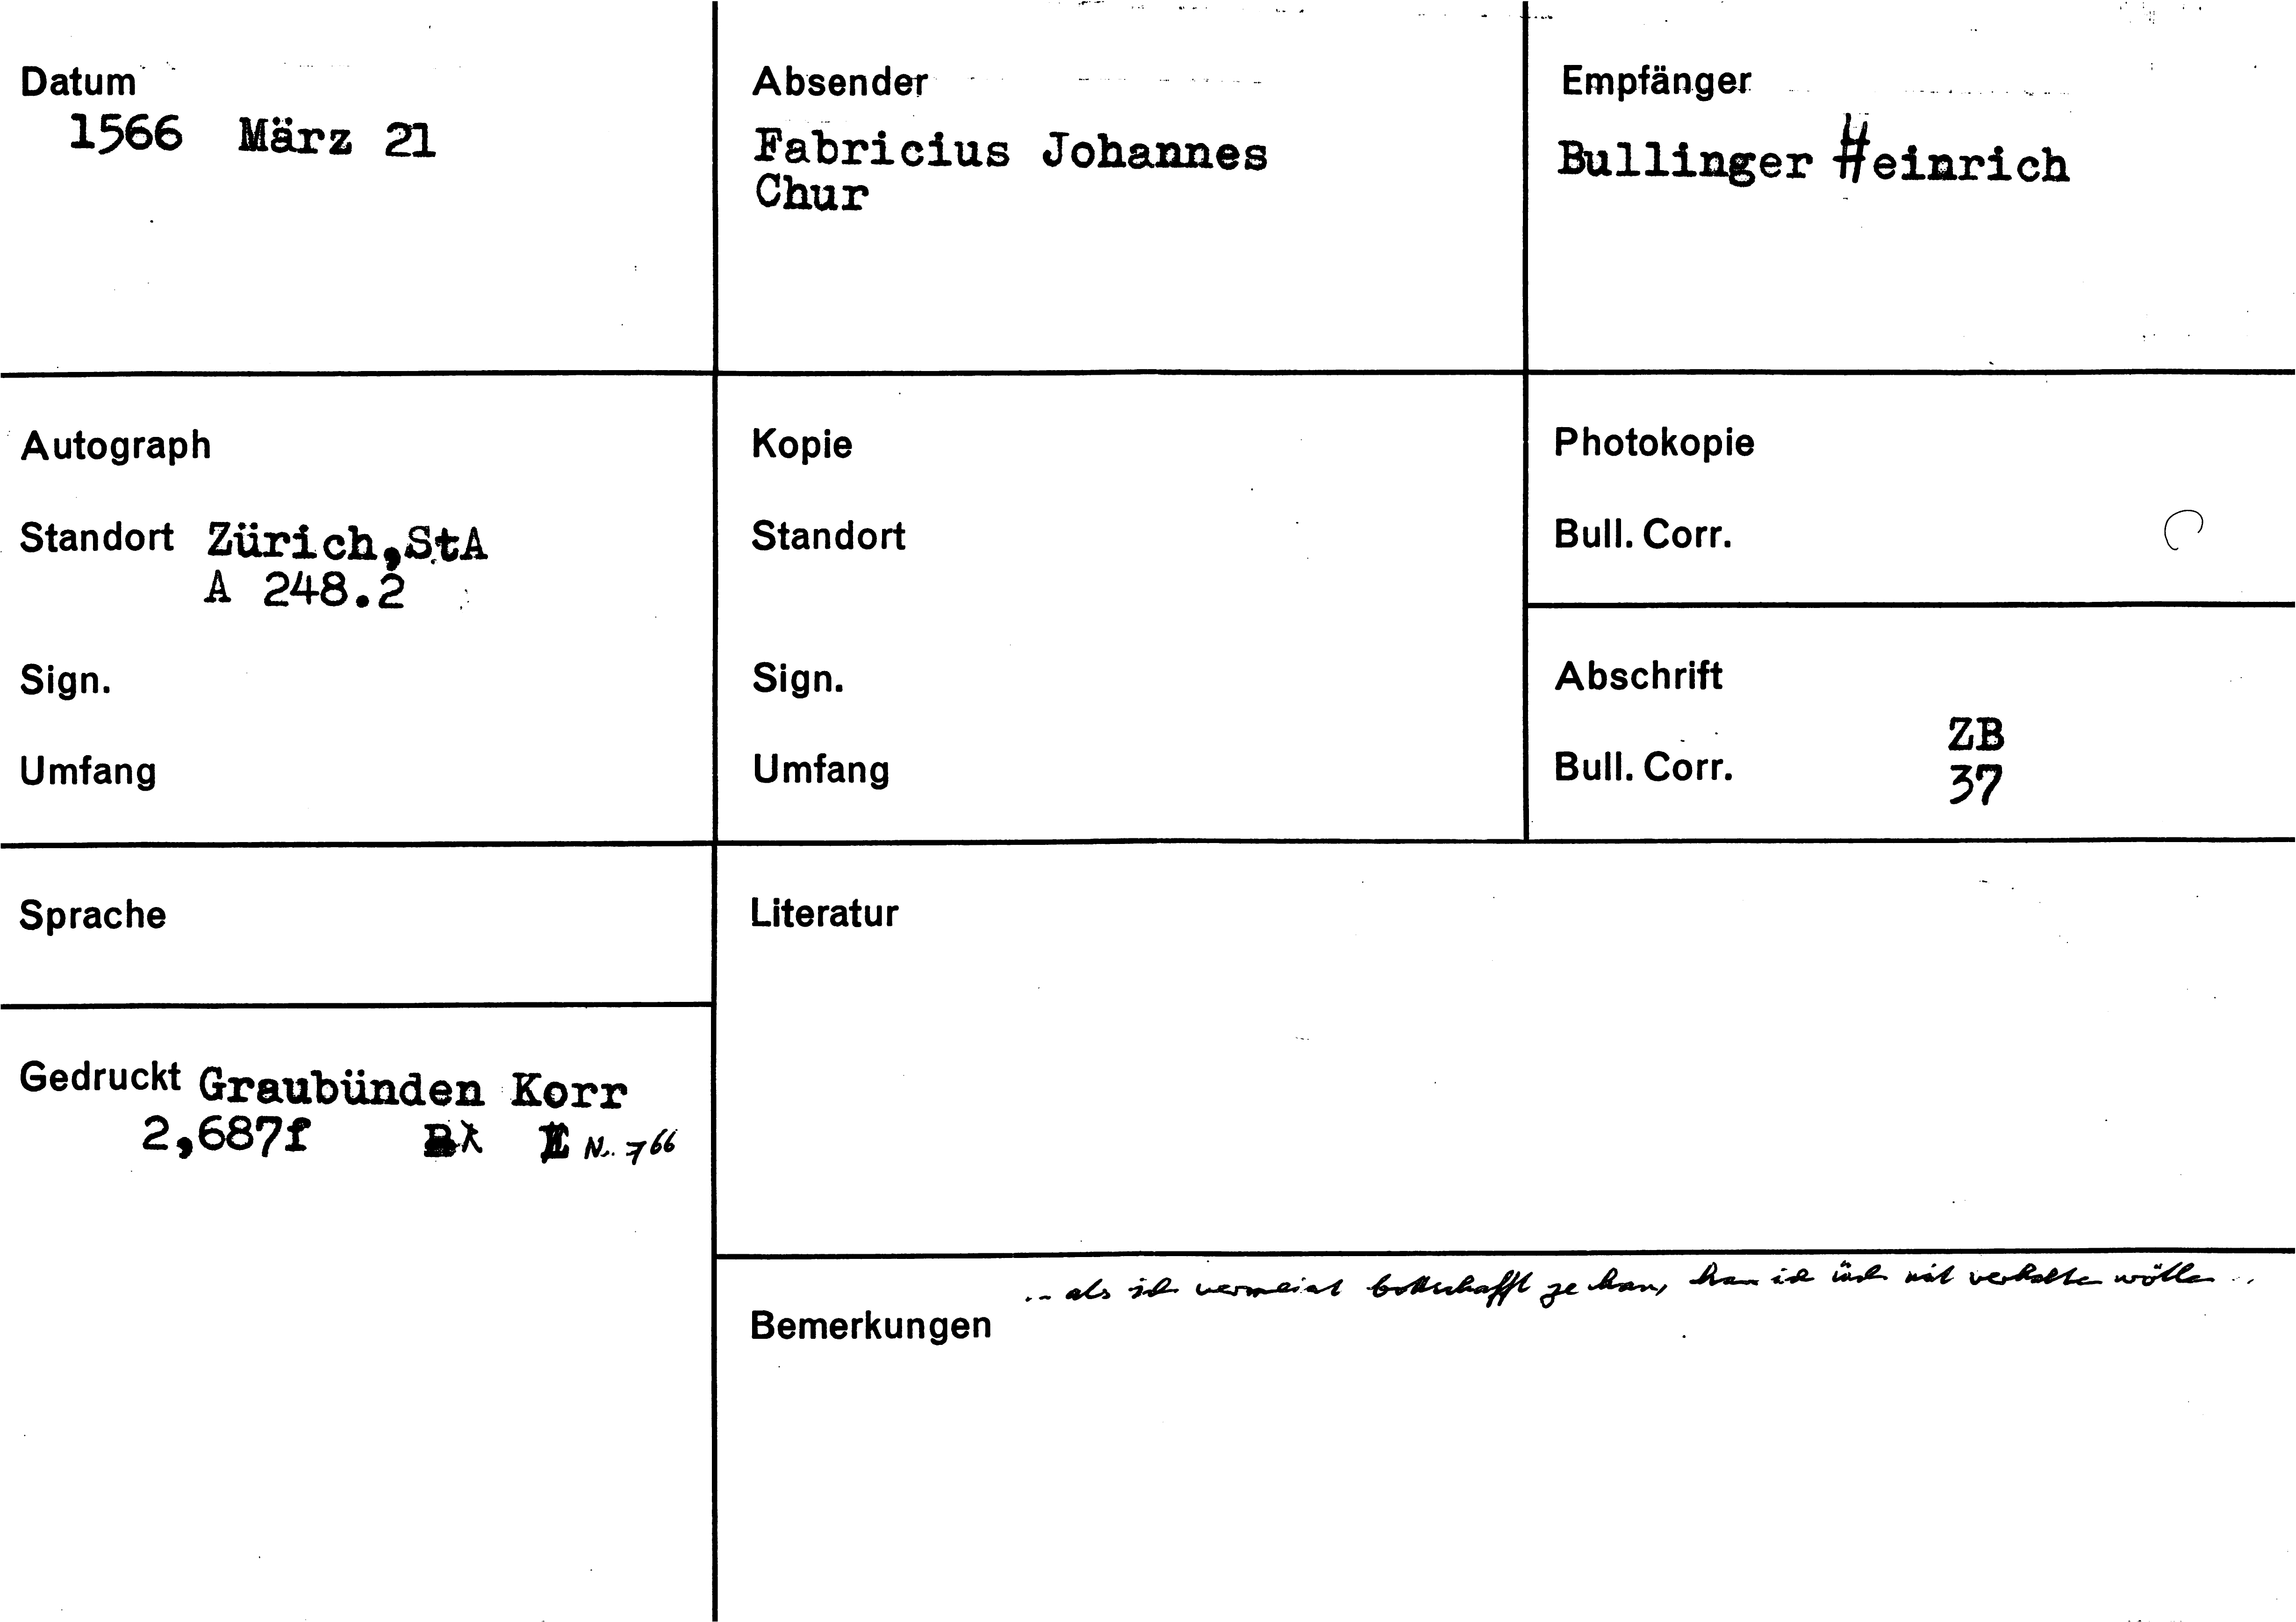 Datum
1566 März 21
Absender
Fabricius Johannes
Chur
Empfänger
Bullinger Heinrich
Autograph
Standort Zürich,StA
A 248.2
Sign.
Umfang
Kopie
Standort
Sign.
Umfang
Photokopie
Bull. Corr.
Abschrift
Bull. Corr. ZB
37
Sprache
Gedruckt Graubünden Korr
2,687f N. 766
Literatur
.. als ich vermeint bottschafft ze han, han ich üch nit verhalten wöllen ..
Bemerkungen